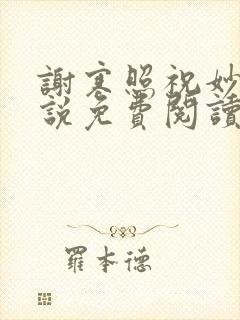 謝寒照祝妙
說免費閱讀
羅本德